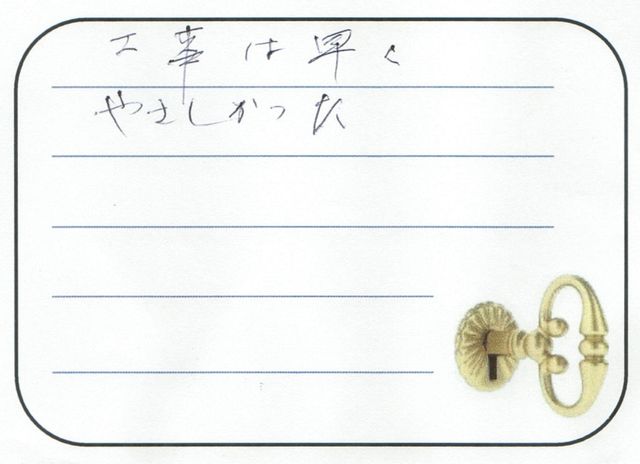 工事は早く
やさしかった